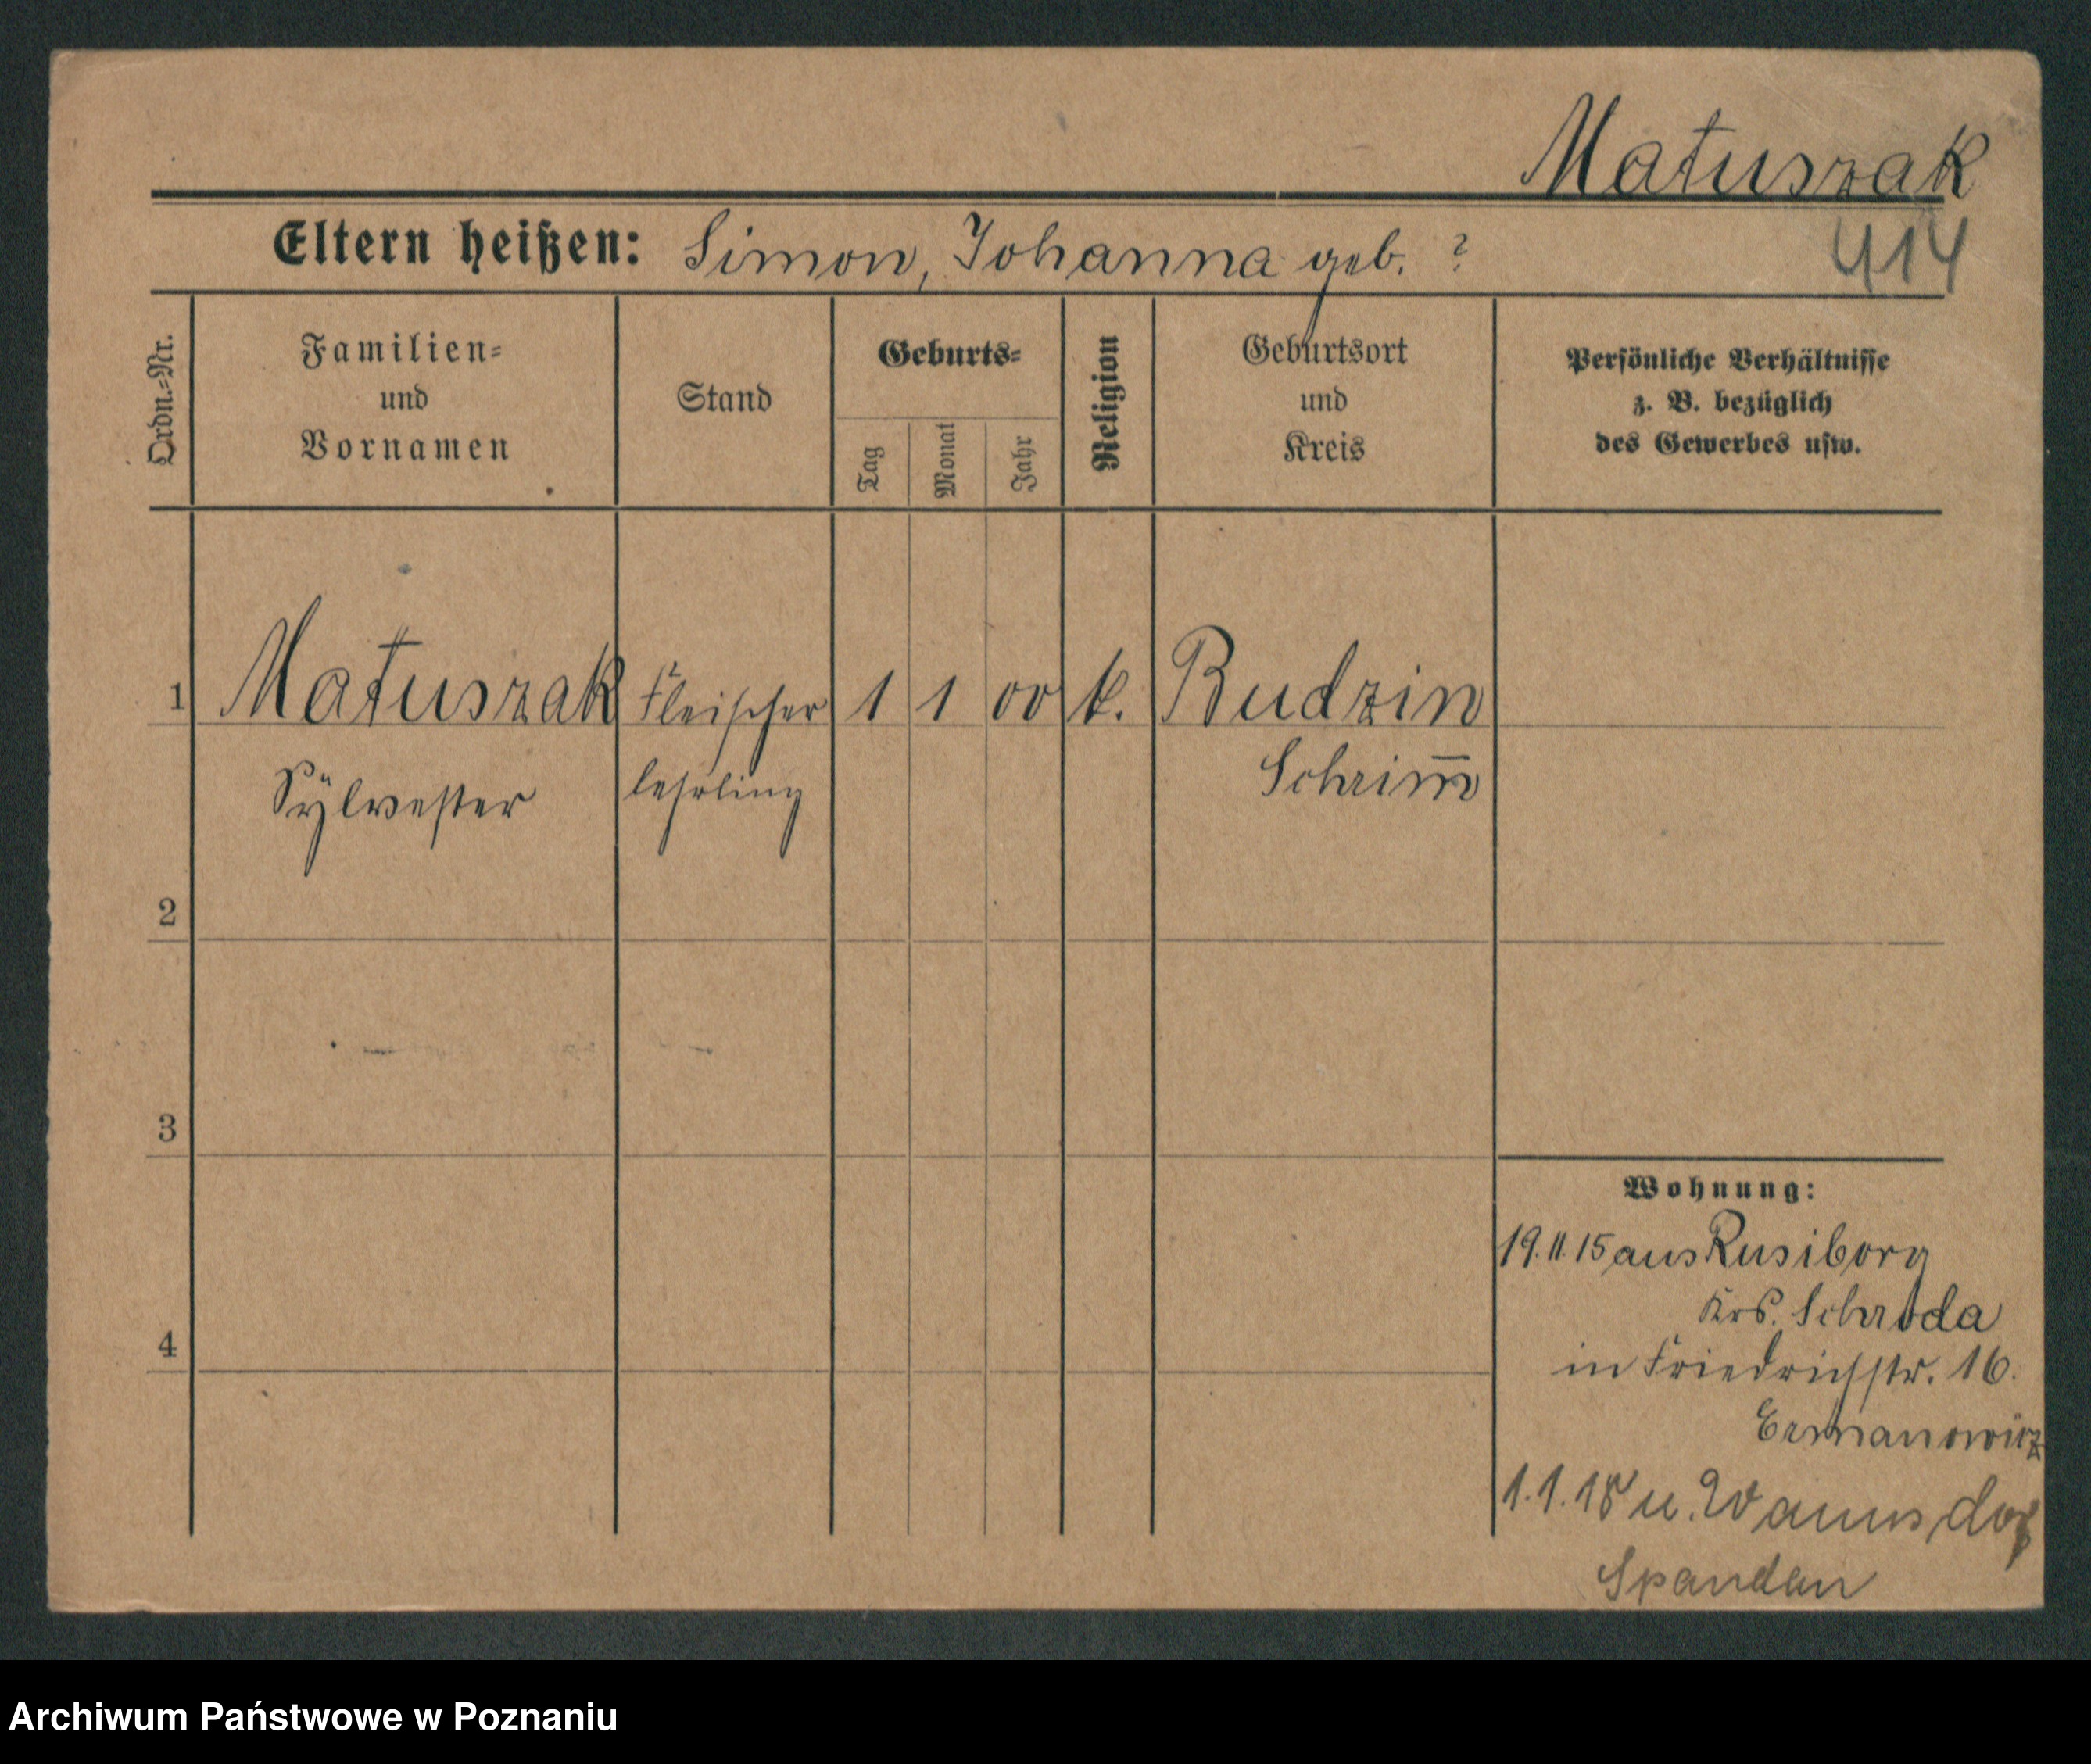 Matuszak
Eltern heißen: Simon, Johanna geb. ?
414
Ordn.-Nr.
Familien-
und
Vornamen
Stand
Geburts-
Tag
Monat
Jahr
Religion
Geburtsort
und
Kreis
Persönliche Verhältnisse
z. B. bezüglich
des Gewerbes usw.
1 Matuszak Fleischer 1 1 00 k. Budzin
Sÿlvester lehrling Schrim̅
2
3
4
Wohnung:
19.11.15 aus Rusiborg
Krs. Schroda
in Friedrichstr. 16.
Ermanowicz
1.1.18 n.
Spandau
Archiwum Państwowe w Poznaniu